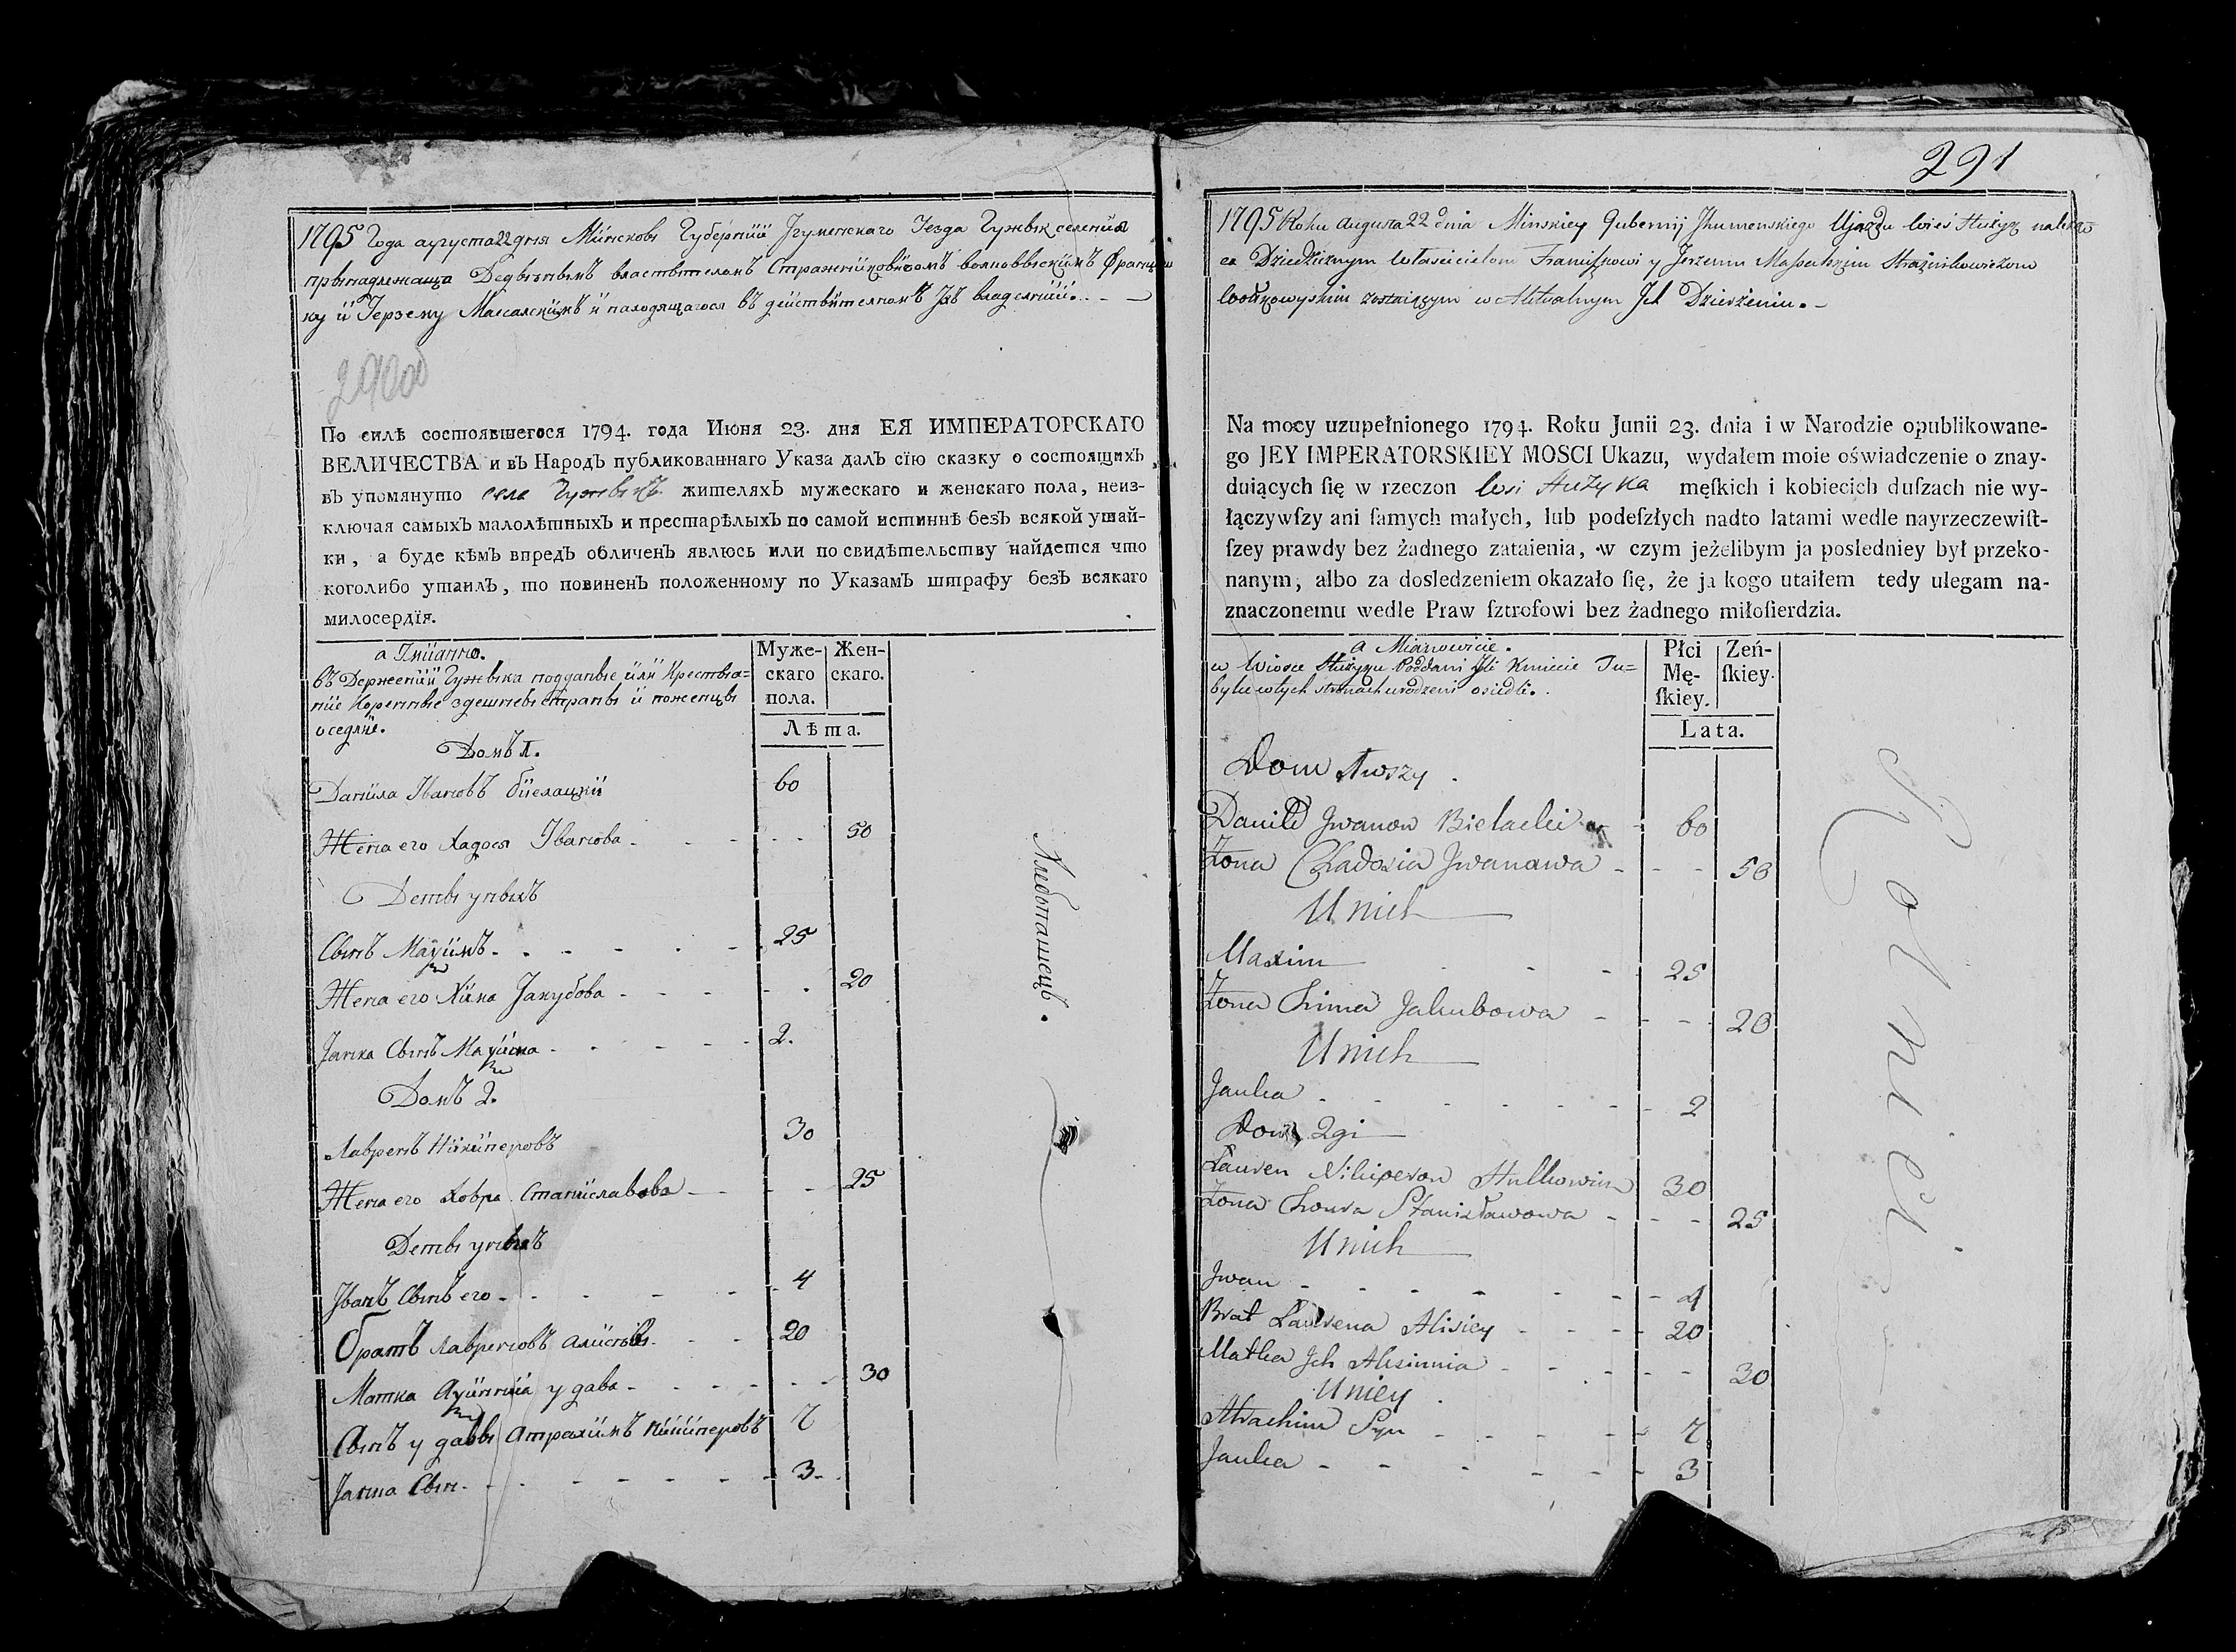 1795 Года августа 22 дня Минсковы Губернии Игуменскаго Уезда Гужвѣк селения
прынадлежаща Дедвычнымъ властвителомъ Стражниковичомъ волковвыскимъ Францыш
ку и Іерзему Масалскимъ и находящагося въ действителномъ Ихъ владении.
По силѣ состоявшегося 1794. года Июня 23. дня ЕЯ ИМПЕРАТОРСКАГО
ВЕЛИЧЕСТВА и въ Народъ публикованнаго Указа далъ сїю сказку о состоящихъ
въ упомянуто села жителяхъ мужескаго и женскаго пола, неиз-
ключая самыхъ малолѣтныхъ и престарѣлыхъ по самой истиннѣ безъ всякой утай-
ки, а буде кѣмъ впредъ обличенъ явлюсь или по свидѣтельству найдется что
коголибо утаилъ, то повиненъ положенному по Указамъ штрафу безъ всякаго
милосердїя.
а Імянно.
въ Держении Гужвыка подданые или Крествіа=
ние Коренные здешневы страны и поженцы
оседлие.
Муже-
скаго
пола.
Жен-
скаго.
Лѣта.
Домъ 1.
Данила Ивановъ биелацкий 60
Жена его Хадося Іванова 50
Деты уныхъ
Сынъ Максимъ 25
Жена его Хима Іакубова 20
Іанка Сынъ Максима 2.
Домъ 2.
Лавренъ Никиперовъ 30
Жена его Ховра Станиславова 25
Деты уныхъ
Іванъ Сынъ его 4
Братъ Лавреновъ 20
Матка Аксинния удава 30
Сынъ удавы Атрахимъ Никиперовъ 7
Іанка Сын 3
291
1795 Roku Augusta 22 dnia Minskiey Gubernij Jhumenskiego Ujazdu wieś Hużyk należąc
ca Dziedzicznym Właścicielom Franciszkowi y Jerzemu Massalskim Strażnikowiczom
wołkowyskim zostaiącym w Aktualnym Jch Dzierżeniu.
Na mocy uzupełnionego 1794. Roku Junii 23. dnia i w Narodzie opublikowane-
go JEY IMPERATORSKIEY MOSCI Ukazu, wydałem moie oświadczenie o znay-
duiących ſię w rzeczon Wsi Hużyka męſkich i kobiecich duſzach nie wy-
łączywſzy ani ſamych małych, lub podeſzłych nadto latami wedle nayrzeczewiſt-
ſzey prawdy bez żadnego zataienia, w czym jeżelibym ja posledniey był przeko-
nanym, albo za dosledzeniem okazało ſię, że ja kogo utaiłem tedy ulegam na-
znaczonemu wedle Praw ſztrofowi bez żadnego miłoſierdzia.
a Mianowicie.
w Wiosce Hużyku Poddani Jli Kmiecie Tu=
bylce w tych stronach urodzeni osiedli.
Płci
Mę-
ſkiey.
Żeń-
ſkiey.
Lata.
Dom 1wszy
Daniło Jwanow Bielacki 60
Żona Chadosia Jwanawa 50
U nich
Maxim 25
Żona Chima Jakubowa 20
U nich
Janka 2
Dom 2gi
Łauren Nikiperow 30
Żona Chowra Stanisławowa 25
U nich
Jwan 4
Brat Laurena Alisiey 20
Matka Jch Aksinnia 30
U niey
Atrachim Syn 7
Janka 3